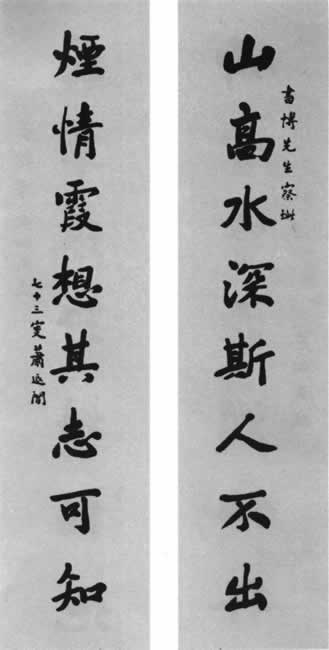 山高水深斯人不出
博先生察
煙情霞想其志可知
七十三叟蕭退闇